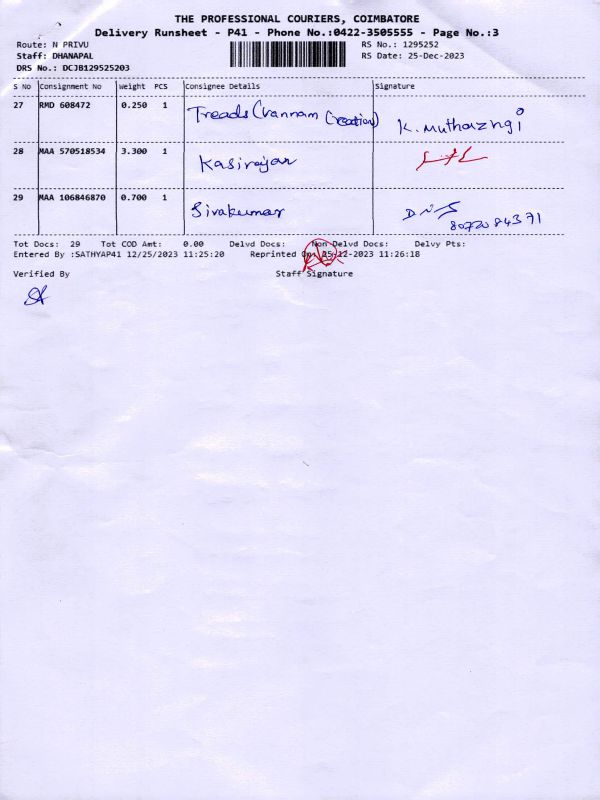 THE PROFESSIONAL COURIERS, COIMBATORE
Delivery Runsheet - P41 - Phone No.:0422-3505555 - Page No.:3
Route: N PRIVU RS No.: 1295252
Staff: DHANAPAL RS Date: 25-Dec-2023
DRS No.: DCJB129525203
S No Consignment No Weight PCS Consignee Details Signature
27 RMD 608472 0.250 1 Treads (Vannam Creation) K. Muthazhgi
28 MAA 570518534 3.300 1 Kasirajan
29 MAA 106846870 0.700 1 Sivakumar 8072084371
Tot Docs: 29 Tot COD Amt: 0.00 Delvd Docs: Non Delvd Docs: Delvy Pts:
Entered By :SATHYAP41 12/25/2023 11:25:20 Reprinted On: 25-12-2023 11:26:18
Verified By Staff Signature